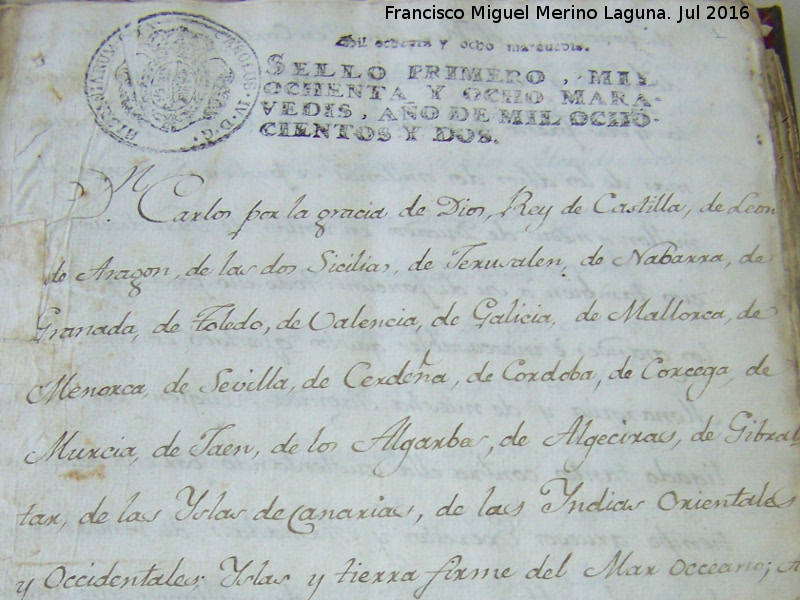 Francisco Miguel Merino Laguna. Jul 2016
Mil ochenta y ocho maravedis.
HISPANIARUM CAROLUS IV D.G.
SELLO PRIMERO, MIL
OCHENTA Y OCHO MARA-
VEDIS, AÑO DE MIL OCHO-
CIENTOS Y DOS.
Dn Carlos por la gracia de Dios, Rey de Castilla, de Leon
de Aragon, de las dos Sicilias, de Jerusalen, de Nabarra, de
Granada, de Toledo, de Valencia, de Galicia, de Mallorca, de
Menorca, de Sevilla, de Cerdeña, de Cordoba, de Corcega, de
Murcia, de Jaen, de los Algarbes, de Algeciras, de Gibral
tar, de las Yslas de Canarias, de las Yndias Orientales
y Occidentales, Yslas y tierra firme del Mar Occeano;